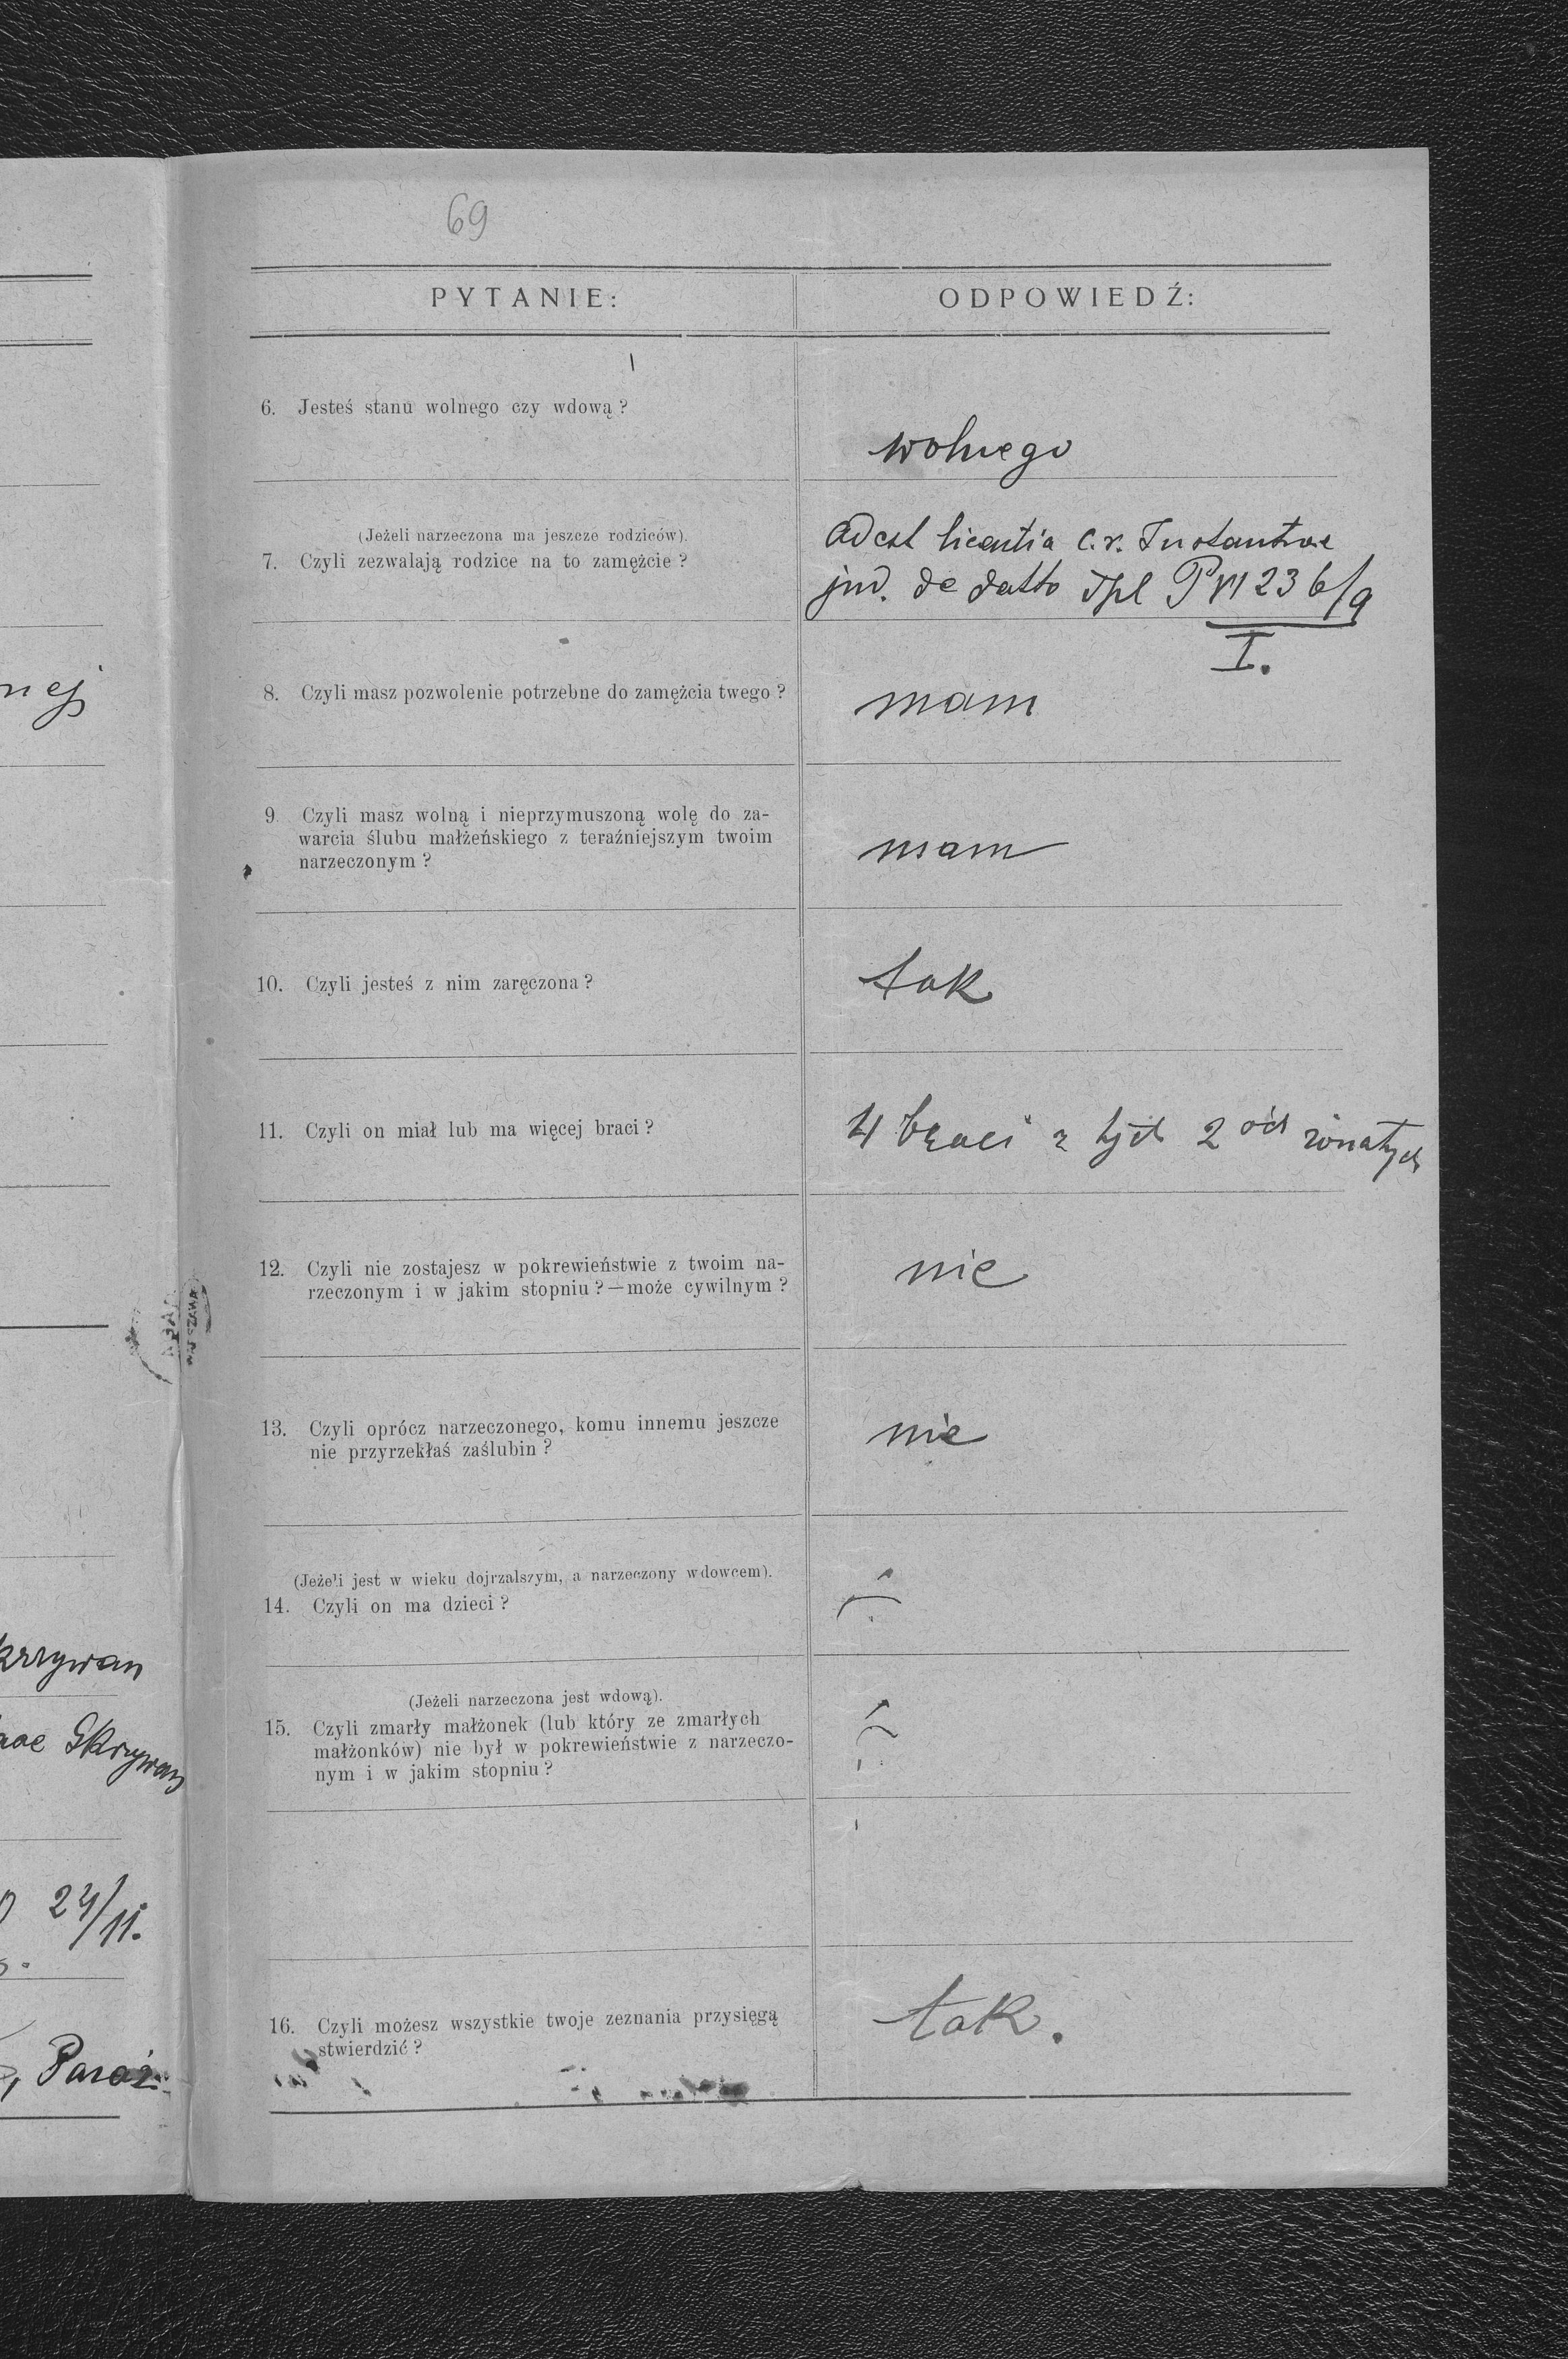 69
PYTANIE: ODPOWIEDŹ:
6. Jesteś stanu wolnego czy wdową?
wolnego
(Jeżeli narzeczona ma jeszcze rodziców).
7. Czyli zezwalają rodzice na to zamęźcie?
adest licentia c.r. Instantiae
jud. de datto Tpl P VII 23 6/9
I.
8. Czyli masz pozwolenie potrzebne do zamęźcia twego?
mam
9. Czyli masz wolną i nieprzymuszoną wolę do za-
warcia ślubu małżeńskiego z teraźniejszym twoim
narzeczonym?
mam
10. Czyli jesteś z nim zaręczona?
tak
11. Czyli on miał lub ma więcej braci?
4 braci z tych 2 óch żonatych
12. Czyli nie zostajesz w pokrewieństwie z twoim na-
rzeczonym i w jakim stopniu?—może cywilnym?
nie
13. Czyli oprócz narzeczonego, komu innemu jeszcze
nie przyrzekłaś zaślubin?
nie
(Jeżeli jest w wieku dojrzalszym, a narzeczony wdowcem).
14. Czyli on ma dzieci?
(Jeżeli narzeczona jest wdową).
15. Czyli zmarły małżonek (lub który ze zmarłych
małżonków) nie był w pokrewieństwie z narzeczo-
nym i w jakim stopniu?
16. Czyli możesz wszystkie twoje zeznania przysięgą
stwierdzić?
tak.
nej
krzywan
Skrzywan
24/11.